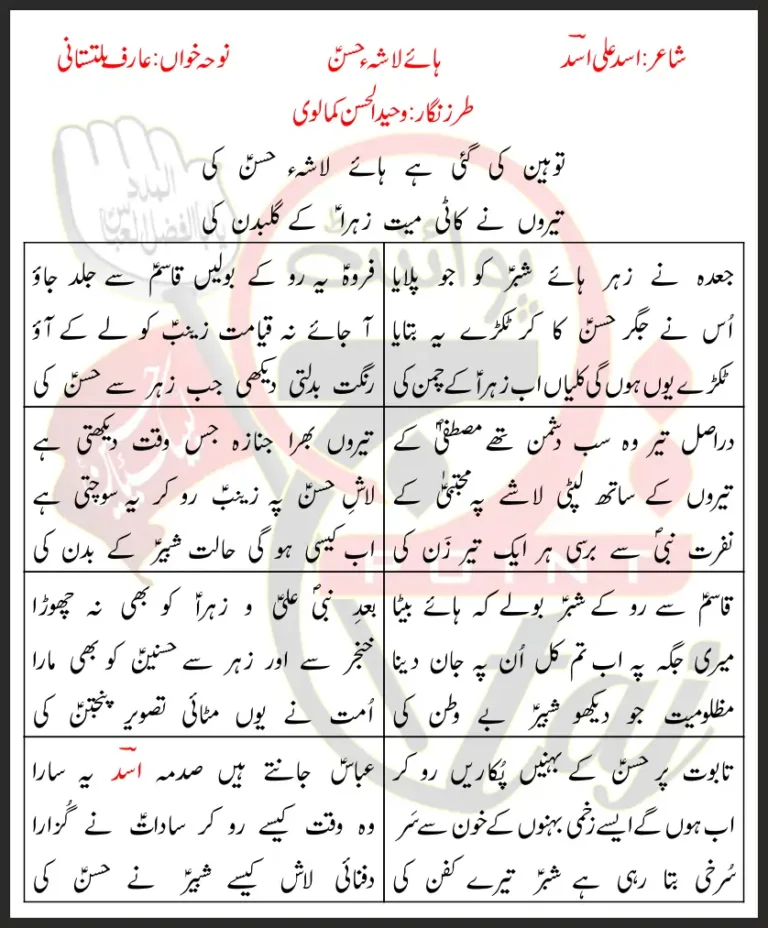 شاعر: اسد علی اسدؔ
ہائے لاشہء حسنؑ
نوحہ خواں: عارف بلتستانی
طرز نگار: وحید الحسن کمالوی
توہین کی گئی ہے ہائے لاشہء حسنؑ کی
تیروں نے کاٹی میت زہراؑ کے گلبدن کی
جعدہ نے زہر ہائے شبرؑ کو جو پلایا
اُس نے جگر حسنؑ کا کر ٹکڑے یہ بتایا
ٹکڑے یوں ہوں گی کلیاں اب زہراؑ کے چمن کی
فروہؑ یہ رو کے بولیں قاسمؑ سے جلد جاؤ
آ جائے نہ قیامت زینبؑ کو لے کے آؤ
رنگت بدلتی دیکھی جب زہر سے حسنؑ کی
دراصل تیر وہ سب دشمن تھے مصطفیٰؐ کے
تیروں کے ساتھ لپٹی لاشے پہ مجتبیٰؑ کے
نفرت نبیؐ سے برسی ہر ایک تیر زَن کی
تیروں بھرا جنازہ جس وقت دیکھتی ہے
لاشِ حسنؑ پہ زینبؑ رو کر یہ سوچتی ہے
اب کیسی ہو گی حالت شبیرؑ کے بدن کی
قاسمؑ سے رو کے شبرؑ بولے کہ ہائے بیٹا
میری جگہ پہ اب تم کل اُن پہ جان دینا
مظلومیت جو دیکھو شبیرؑ بے وطن کی
بعدِ نبیؐ علیؑ و زہراؑ کو بھی نہ چھوڑا
خنجر سے اور زہر سے حسنینؑ کو بھی مارا
اُمت نے یوں مٹائی تصویر پنجتنؑ کی
تابوت پر حسنؑ کے بہنیں پُکاریں رو کر
اب ہوں گے ایسے زخمی بہنوں کے خون سے سَر
سُرخی بتا رہی ہے شبرؑ تیرے کفن کی
عباسؑ جانتے ہیں صدمہ اسدؔ یہ سارا
وہ وقت کیسے رو کر ساداتؑ نے گُزارا
دفنائی لاش کیسے شبیرؑ نے حسنؑ کی
پوائنٹ
POINT
taj